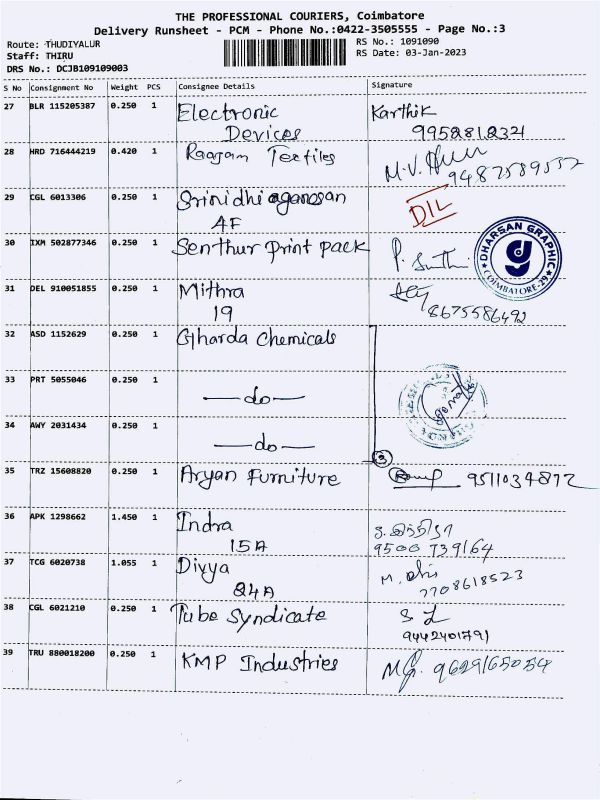 THE PROFESSIONAL COURIERS, Coimbatore
Delivery Runsheet - PCM - Phone No.:0422-3505555 - Page No.:3
Route: THUDIYALUR RS No.: 1091090
Staff: THIRU RS Date: 03-Jan-2023
DRS No.: DCJB109109003
S No Consignment No Weight PCS Consignee Details Signature
27 BLR 115205387 0.250 1 Electronic Karthik
Devices 995281.2321
28 HRD 716444219 0.420 1 Raagam Textiles M.V.
9487589532
29 CGL 6013306 0.250 1 Srinidhi DIL
AF
30 IXM 502877346 0.250 1 Senthur print pack P.
DHARSAN GRAPHIC
COIMBATORE-29
31 DEL 910051855 0.250 1 Mithra
19 8675586492
32 ASD 1152629 0.250 1 Gharda Chemicals
33 PRT 5055046 0.250 1
—do—
34 AWY 2031434 0.250 1
—do—
3
35 TRZ 15608820 0.250 1 Aryan Furniture 9511034872
36 APK 1298662 1.450 1 Indra
15A 9500739164
37 TCG 6020738 1.055 1 Divya M.
24A 7708618523
38 CGL 6021210 0.250 1 Tube Syndicate
9442401791
39 TRU 880018200 0.250 1 KMP Industries 9629165054